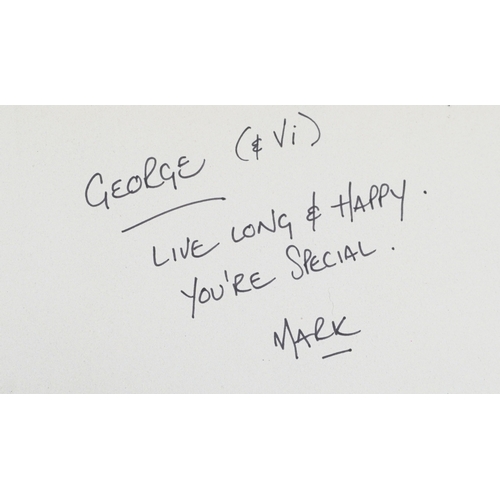 GEORGE (& Vi)
LIVE LONG & HAPPY.
YOU'RE SPECIAL.
MARK